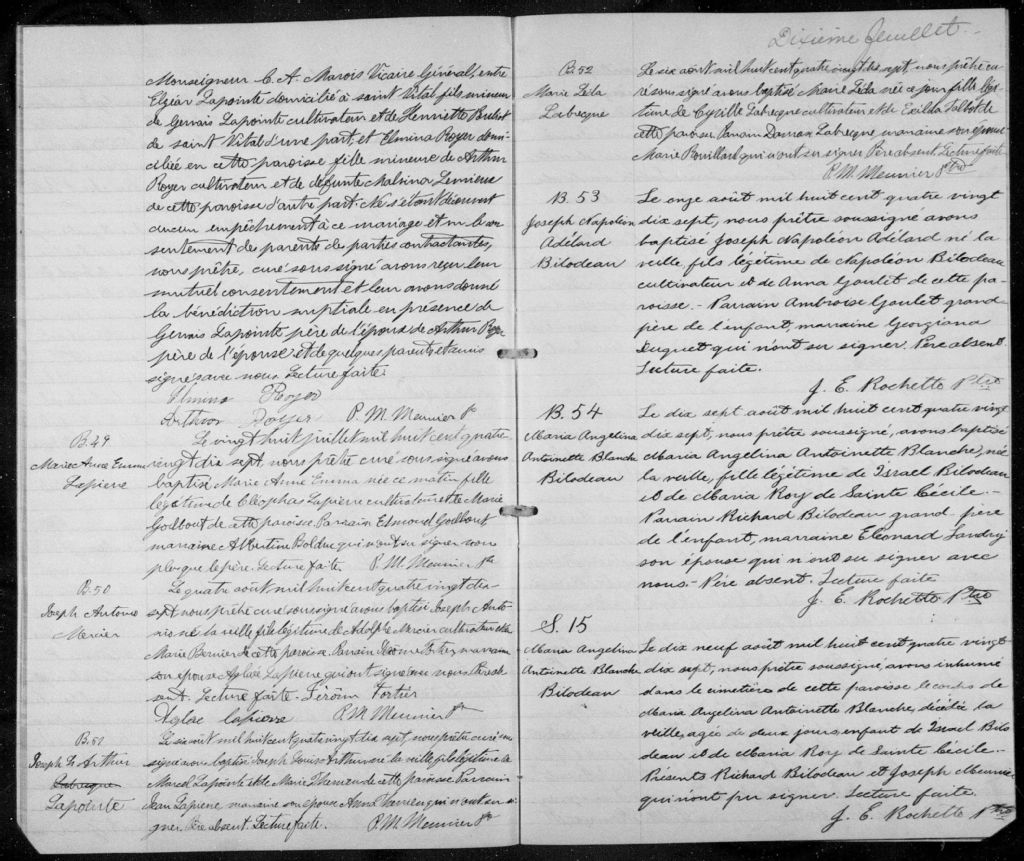 Monseigneur C. A. Marois Vicaire Général, entre
Elzéar Lapointe domicilié à saint Vital fils mineur
de Gervais Lapointe cultivateur et de Henriette
de saint Vital d'une part, et Elmina Royer domi-
ciliée en cette paroisse fille mineure de Arthur
Royer cultivateur et de défunte Malvina Lemieux
de cette paroisse d'autre part. Ne s'étant découvert
aucun empêchement à ce mariage et le con
sentement de parents de parties contractantes,
nous prêtre, curé soussigné avons reçu leur
mutuel consentement et leur avons donné
la bénédiction nuptiale en présence de
Gervais Lapointe père de l'époux de Arthur Royer
père de l'épouse et de quelques parents et amis
signé avec nous. Lecture faite.
Elmina Royer
Arthur Royer P. M. Meunier Ptre
B. 49
Marie Anne Emma
Lapierre
Le vingt huit juillet mil huit cent quatre
vingt dix sept, nous prêtre curé soussigné avons
baptisé Marie Anne Emma née ce matin fille
légitime de Cléophas Lapierre cultivateur et de Marie
Godbout de cette paroisse. Parrain Elmond Godbout
marraine Albertine Bolduc qui n'ont su signer non
plus que le père. Lecture faite P. M. Meunier Ptre
B. 50
Joseph Antonio
Mercier
Le quatre août mil huit cent quatre vingt dix
sept nous prêtre curé soussigné avons baptisé Joseph Anto-
nio né la veille fils légitime de Adolphe Mercier cultivateur et de
Marie Bernier de cette paroisse. Parrain Jérôme Fortier, marraine
son épouse Aglaé Lapierre qui ont signé avec nous. Père ab
sent. Lecture faite. Jérôm Fortier
Aglae lapierre P. M. Meunier Ptre
B. 51
Joseph Ls Arthur
Labrecque
Lapointe
Le six août mil huit cent quatre vingt dix sept, nous prêtre curé sous
signé avons baptisé Joseph Louis Arthur né la veille fils légitime de
Marcel Lapointe et de Marie Therrien de cette paroisse Parrain
Jean Lapierre marraine son épouse Anna Therrien qui n'ont su si-
gner. Père absent. Lecture faite. P. M. Meunier Ptre
Dixième feuillet.
B. 52
Marie Léda
Labrecque
Le six août mil huit cent quatre vingt dix sept, nous prêtre cu-
ré soussigné avons baptisé Marie Léda née ce jour fille légi-
time de Cyrille Labrecque cultivateur et de Exilda Talbot de
cette paroisse Parrain Damase Labrecque marraine son épouse
Marie Rouillard qui n'ont su signer Père absent Lecture faite
P. M. Meunier Ptre
B. 53
Joseph Napoléon
Adélard
Bilodeau
Le onze août mil huit cent quatre vingt
dix sept, nous prêtre soussigné avons
baptisé Joseph Napoléon Adélard né la
veille, fils légitime de Napoléon Bilodeau
cultivateur et de Anna Goulet de cette pa-
roisse. - Parrain Ambroise Goulet grand
père de l'enfant, marraine Georgiana
Duquet qui n'ont su signer. Père absent.
Lecture faite.
J. E. Rochette Ptre
B. 54
Maria Angelina
Antoinette Blanche
Bilodeau
Le dix sept août mil huit cent quatre vingt
dix sept, nous prêtre soussigné, avons baptisé
Maria Angelina Antoinette Blanche, née
la veille, fille légitime de Israel Bilodeau
et de Maria Roy de Sainte Cécile. -
Parrain Richard Bilodeau grand-père
de l'enfant, marraine Eléonard Landry
son épouse qui n'ont su signer avec
nous. - Père absent. Lecture faite
J. E. Rochette Ptre
S. 15
Maria Angelina
Antoinette Blanche
Bilodeau
Le dix neuf août mil huit cent quatre vingt
dix sept, nous prêtre soussigné, avons inhumé
dans le cimetière de cette paroisse le corps de
Maria Angelina Antoinette Blanche, décédée la
veille, agée de deux jours, enfant de Israel Bilo
deau et de Maria Roy de Sainte Cécile. -
Présents Richard Bilodeau et Joseph Meunier
qui n'ont pu signer. Lecture faite.
J. E. Rochette Ptre